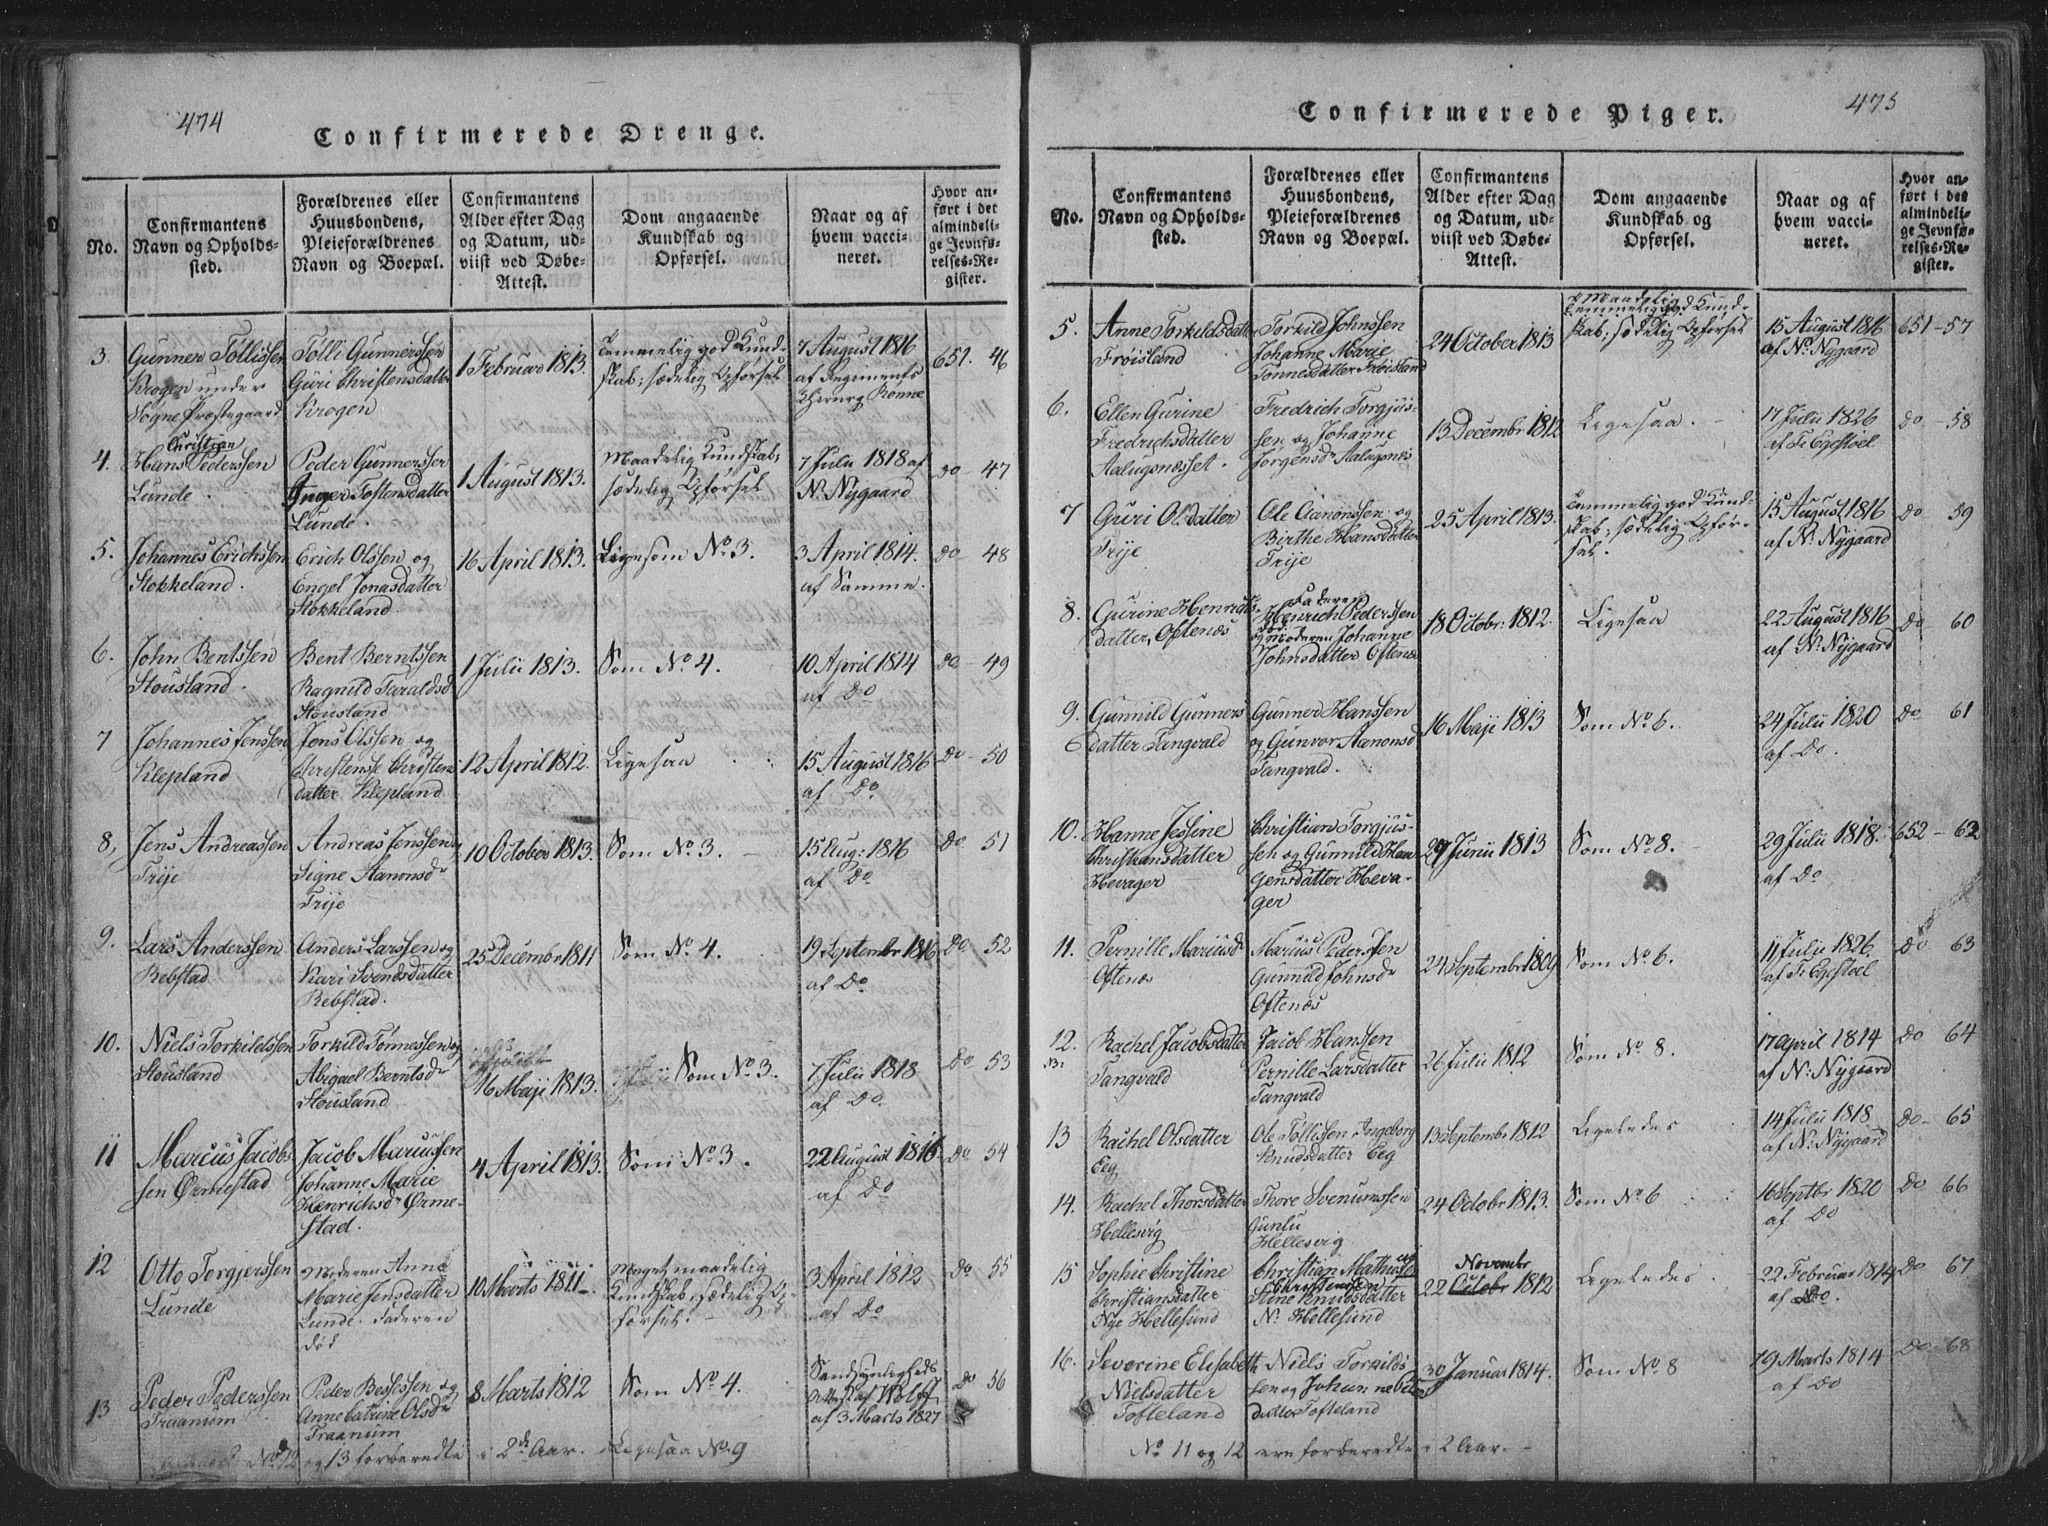 474
Confirmerede Drenge.
No.
Confirmantens
Navn og Opholds-
sted.
Forældrenes eller
Huusbondens,
Pleieforældrenes
Navn og Boepæl.
Confirmantens
Alder efter Dag
og Datum, ud-
viist ved Døbe-
Attest.
Dom angaaende
Kundskab og
Opførsel.
Naar og af
hvem vacci-
neret.
Hvor an-
ført i det
almindeli-
ge Jevnfø-
relses-Re-
gister.
3.
Gunner Tollissen
Krogen under
Sogne Præstegaard
Tolli Gunnerssen
Guri Christensdatter
Krogen
1 Februar 1813.
Temmelig god Kund-
skab; sædelig Opførsel
7 August 1816
af Regiments
Chirurg Rønne
651. 46
4.
Christian
Hans Pederssen
Lunde.
Peder Gunnerssen
Inger Toftensdatter
Lunde.
1 August 1813.
Maadelig Kundskab;
sædelig Opførsel
7 Julii 1818 af
N. Nygaard
Do - 47
5.
Johannes Erichssen
Stokkeland.
Erich Olssen og
Engel Jonasdatter
Stokkeland.
16 April 1813.
Ligesom No 3.
3 April 1814.
af Samme.
Do - 48
6.
John Bentssen
Stousland.
Bent Berntssen
Ragnild Taraldsd
Stousland
1 Julii 1813.
Som No 4.
10 April 1814
af Do
Do - 49
7
Johannes Jenssen
Klepland
Jens Olssen og
Christense Christens
datter Klepland.
12 April 1812.
Ligesaa
15 August 1816
af Do
Do - 50
8,
Jens Andreassen
Trije
Andreas Jenssen
Signe Aanonsdr
Trije
10 October 1813.
Som No 3.
15 Aug: 1816
af Do
Do 51
9.
Lars Anderssen
Rebstad
Anders Larssen og
Kari Svendsdatter
Rebstad.
25 Decembr 1811
Som No 4.
19 Septembr 1816
af Do
Do 52
10.
Niels Torkildssen
Stousland
Torkild Tønnessen og
Abigael Berntsdr
Stousland
16 Maji 1813.
Som No 3.
7 Julii 1818
af Do
Do 53
11
Marcus Jacobs-
sen Ørmestad
Jacob Mariussen
Johanne Marie
Henrichsdr Ørme-
stad.
4 April 1813.
Som No 3.
22 August 1816.
af Do
Do 54
12
Otto Torgjerssen
Lunde
Moderen Anne
Marie Jensdatter
Lunde. Faderen
død
10 Marts 1811.
Meget maadelig
Kundskab; sædelig Op-
førsel.
3 April 1812
af Do
Do 55
13
Peder Pederssen
Traanum
Peder Bessessen og
Anne Catrine Olsdr
Traanum
8 Marts 1812
Som No 4.
Sandsynligheds
Attest af Wolff
af 3 Marts 1827
Do 56
No 12 og 13 forberedte i 2de Aar. Ligesaa No 9
475
Confirmerede Piger.
No.
Confirmantens
Navn og Opholds-
sted.
Forældrenes eller
Huusbondens,
Pleieforældrenes
Navn og Boepæl.
Confirmantens
Alder efter Dag
og Datum, ud-
viist ved Døbe-
Attest.
Dom angaaende
Kundskab og
Opførsel.
Naar og af
hvem vacci-
neret.
Hvor an-
ført i det
almindeli-
ge Jevnfø-
relses-Re-
gister.
5.
Anne Torkildsdatter
Frøisland
Torkild Johnssen
Johanne Marie
Tønnesdatter Frøisland
24 October 1813
Maadelig
Temmelig god Kund-
skab; sædelig Opførsel
15 August 1816
af N. Nygaard
651 - 57
6.
Ellen Gurine
Fredrichsdatter
Aalugsnæsset.
Fredrich Torgjus-
sen og Johanne
Jørgensdr Aalugsnæs
13 Decembr 1812
Ligesaa
17 Julii 1826
af F. Egestøel
Do - 58
7
Guri Olsdatter
Trije
Ole Aanonssen og
Birthe Hansdatter
Trije
25 April 1813.
Temmelig god Kund-
skab; sædelig Opfør-
sel.
15 August 1816
af N. Nygaard
Do 59
8.
Gurine Henrichs-
datter, Oftenæs
Faderen
Henrich Pederssen
og Moderen Johanne
Johnsdatter Oftenæs
18 Octobr: 1812.
Ligesaa
22 August 1816
af N. Nygaard
Do - 60
9.
Gunnild Gunners
datter Tangvald
Gunner Hanssen
og Gunvor Aanonsd
Tangvald.
16 Maji 1813
Som No 6.
24 Julii 1820
af Do.
Do 61
10.
Hanne Jessine
Christiansdatter
Hevager
Christian Torgjus-
sen og Gunnild Haa-
gensdatter Heva-
ger
27 Junii 1813
Som No 8.
29 Julii 1818.
af Do
652 - 62
11.
Pernille Mariusd
Oftenæs
Marius Pederssen
Gunnild Johnsdr
Oftenæs
24 September 1809
Som No 6.
11 Julii 1826.
af F. Egestøel
Do 63
12.
Rachel Jacobsdatter
Tangvald
Jacob Hanssen
Pernille Larsdatter
Tangvald
26 Julii 1812
Som No 8.
17 april 1814
af N. Nygaard
Do 64
13
Rachel Olsdatter
Eeg
Ole Tollissen Ingeborg
Knudsdatter Eeg
13 Septembr 1812
Ligeledes
14 Julii 1818
af N. Nygaard
Do - 65
14.
Rachel Thorsdatter
Hellesvig
Thore Svenumssen
Gunlu
Hellesvig
24 Octobr 1813.
Som No 6
16 Septbr 1820
af Do
Do 66
15
Sophie Christine
Christiansdatter
Nye Hellesund
Christian Mathias og
Christenssen
Stine Knudsdatter
N. Hellesund
Novembr
22 Octobr 1812
Ligeledes
22 Februar 1814
af Do.
Do 67
16.
Severine Elisabeth
Nielsdatter
Tofteland
Niels Torkilds-
sen og Johanne
datter Tofteland
30 Januar 1814.
Som No 8
19 Marts 1814
af Do
Do - 68
No 11 og 12 ere forberedte i 2 Aar.